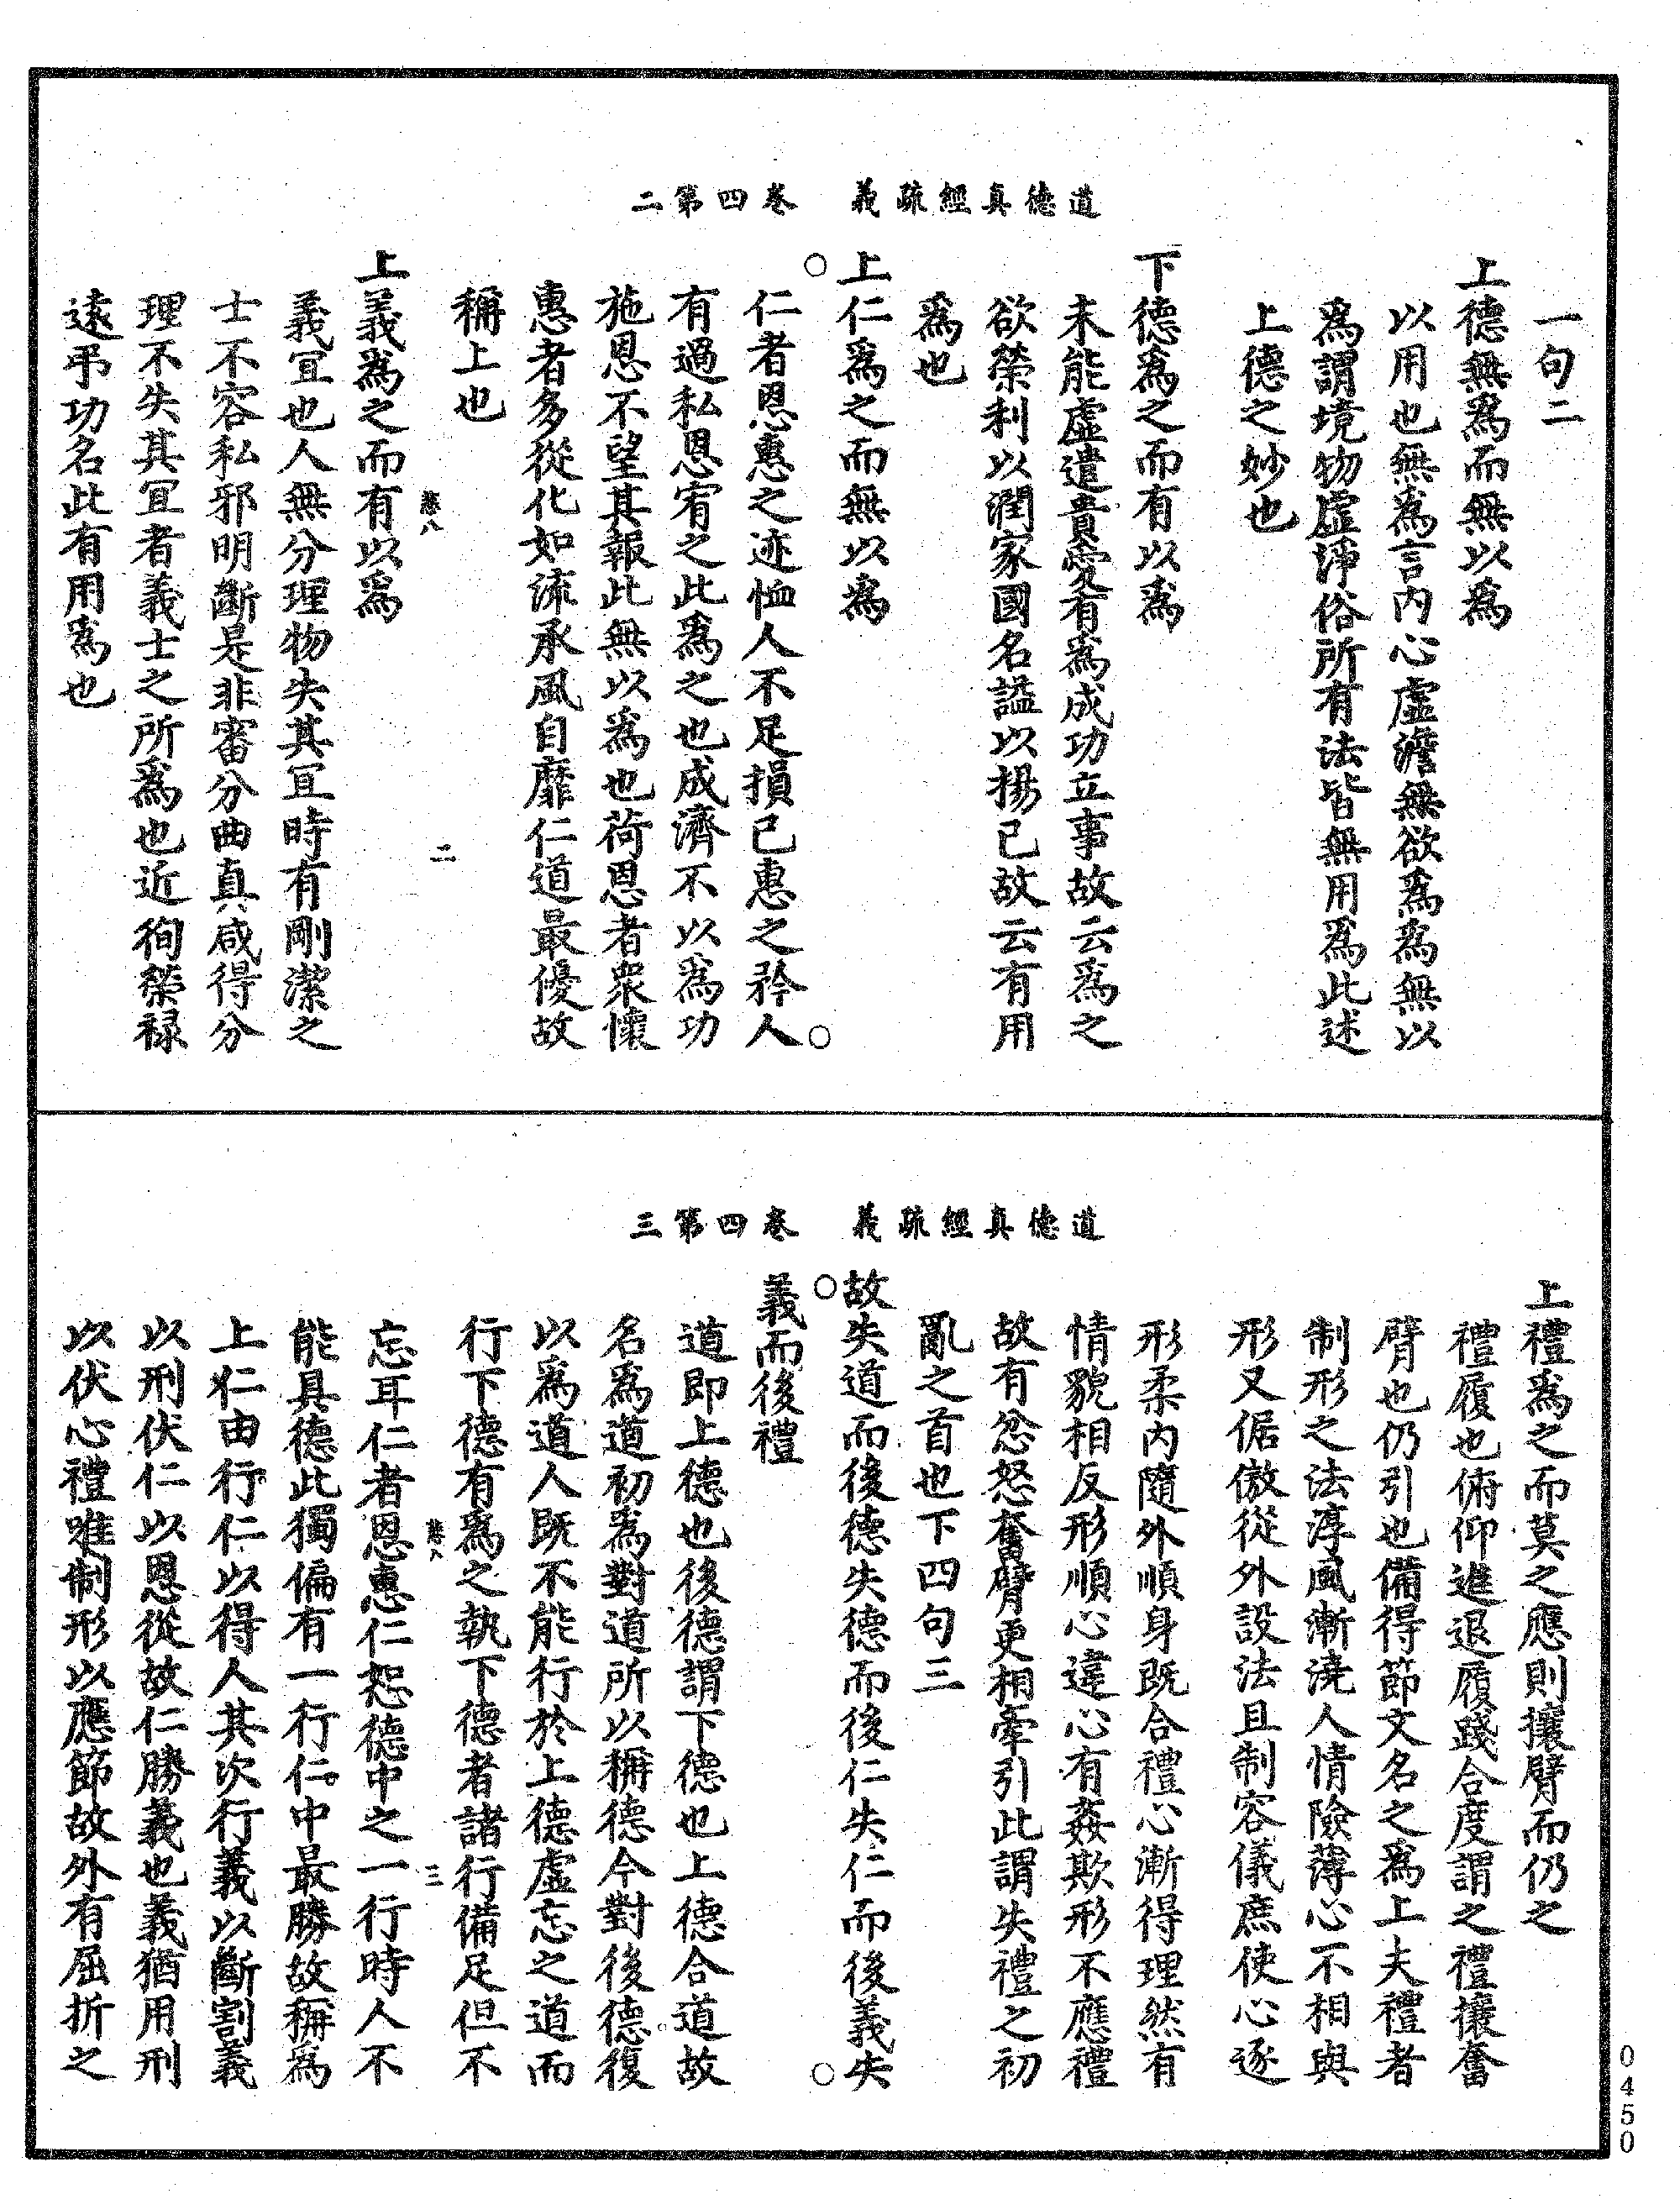 道德真經疏義　卷四第二
一句二
上德無爲而無以爲
以用也無爲言内心虛澹無欲爲爲無以
爲謂境物虛淨俗所有法皆無用爲此述
上德之妙也
下德爲之而有以爲
未能虛遣貴愛有爲成功立事故云爲之
欲榮利以潤家國名謚以揚已故云有用
爲也
上仁爲之而無以爲
仁者恩惠之迹恤人不足損已惠之矜人
有過私恩宥之此爲之也成濟不以爲功
施恩不望其報此無以爲也荷恩者衆懷
惠者多從化如流承風自靡仁道最優故
稱上也
恭八　二
上義爲之而有以爲
義宜也人無分理物失其宜時有剛潔之
士不容私邪明斷是非審分曲真咸得分
理不失其宜者義士之所爲也近徇榮禄
遠弔功名此有用爲也
道德真經疏義　卷四第三
上禮爲之而莫之應則攘臂而仍之
禮履也俯仰進退履踐合度謂之禮攘奮
臂也仍引也備得節文名之爲上夫禮者
制形之法淳風漸澆人情險薄心不相與
形又倨傲從外設法且制容儀庶使心逐
形柔内隨外順身既合禮心漸得理然有
情貌相反形順心違心有姦欺形不應禮
故有忿怒奮臂更相牽引此謂失禮之初
亂之首也下四句三
故失道而後德失德而後仁失仁而後義失
義而後禮
道即上德也後德謂下德也上德合道故
名爲道初爲對道所以稱德今對後德復
以爲道人既不能行於上德虛忘之道而
行下德有爲之執下德者諸行備足但不
恭八　三
忘耳仁者恩惠仁恕德中之一行時人不
能具德此獨偏有一行仁中最勝故稱爲
上仁由行仁以得人其次行義以斷割義
以刑伏仁以恩從故仁勝義也義猶用刑
以伏心禮唯制形以應節故外有屈折之
0450